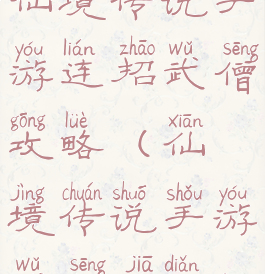 仙境传说手
yóu lián zhāo wǔ sēng
游连招武僧
gōng lüè xiān
攻略（仙
jìng chuán shuō shǒu yóu
境传说手游
wǔ sēng jiā diǎn